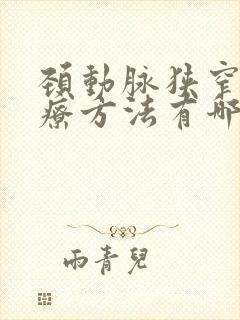 頸動脉狹窄
療方法有哪
雨青兒